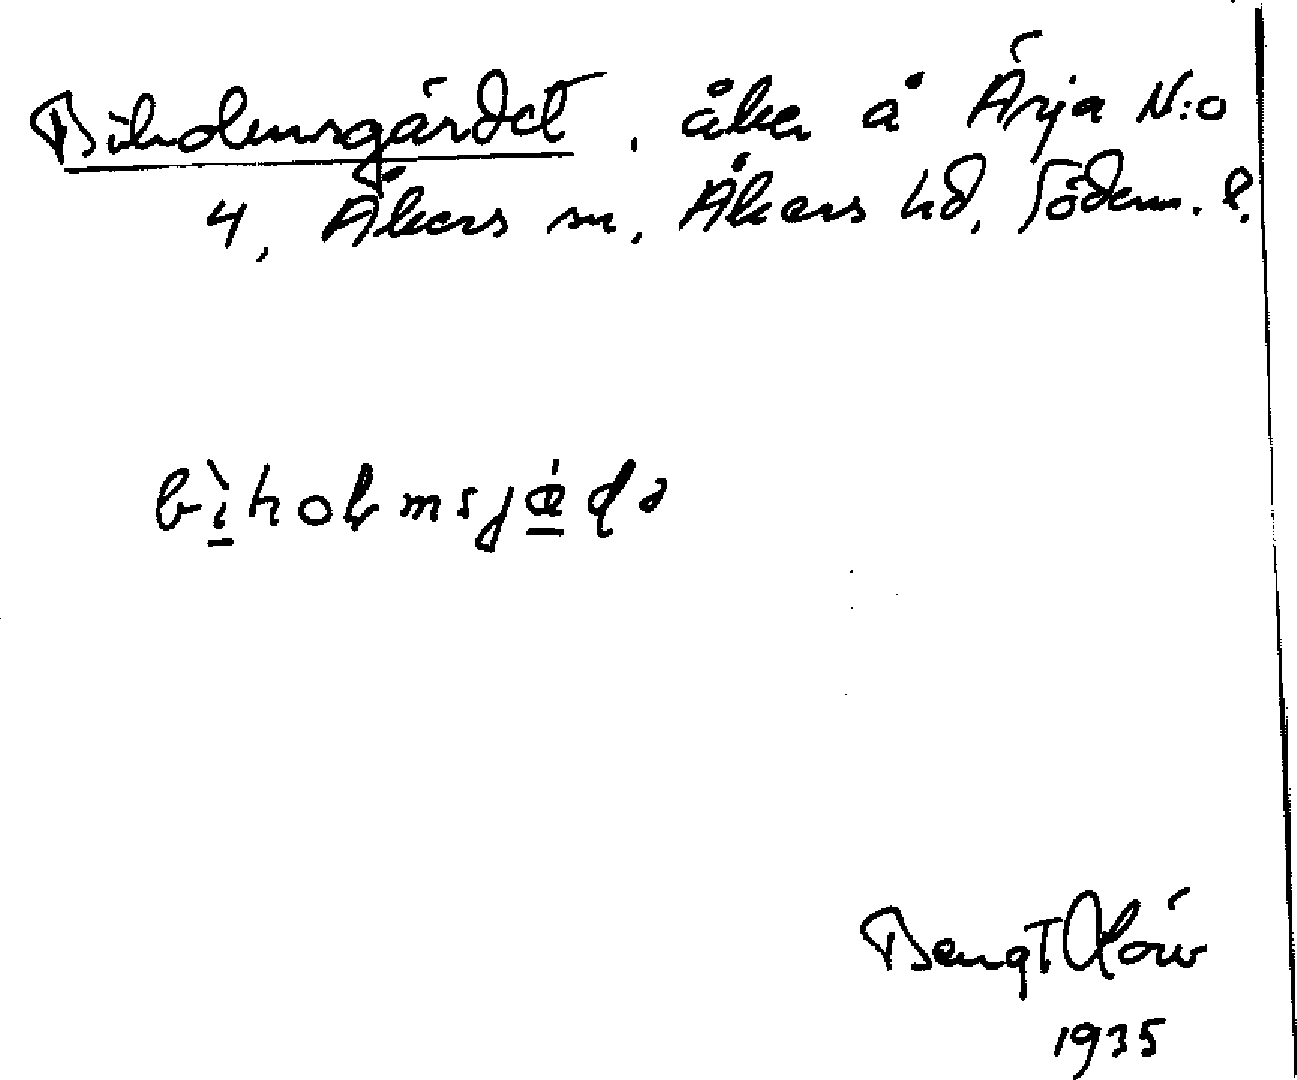 Biholmsgärdet, åker å Ärja N:o
4, Åkers sn, Åkers hd, Södm. l.
bìholmsjæ̍ḍə
Bengt
1935